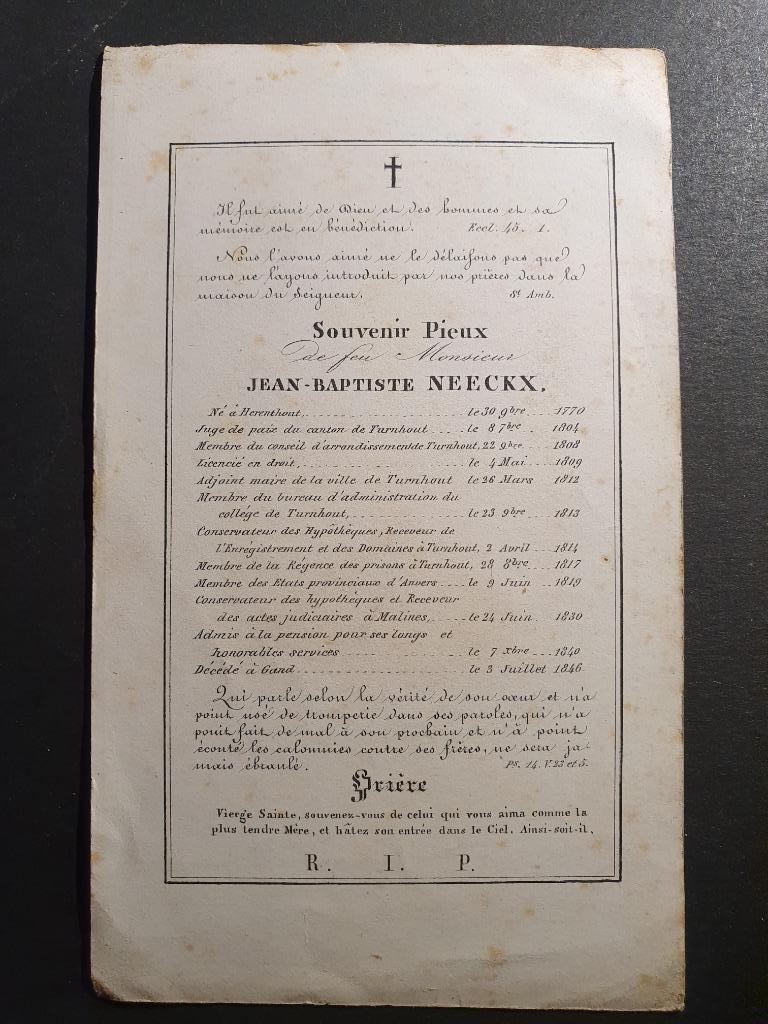 ✝
Il fut aimé de Dieu et des hommes et sa
mémoire est en bénédiction. Eccl. 45. 1.
Nous l'avons aimé ne le délaissons pas que
nous ne l'ayons introduit par nos prières dans la
maison du Seigneur. St Amb.
Souvenir Pieux
de feu Monsieur
JEAN-BAPTISTE NEECKX.
Né à Herenthout,........le 30 9bre....1770
Juge de paix du canton de Turnhout....le 8 7bre....1804
Membre du conseil d'arrondissement de Turnhout, 22 9bre...1808
Licencié en droit,........le 4 Mai...1809
Adjoint maire de la ville de Turnhout le 26 Mars 1812
Membre du bureau d'administration du
collége de Turnhout,........le 23 9bre...1813
Conservateur des Hypothèques, Receveur de
l'Enregistrement et des Domaines à Turnhout, 2 Avril...1814
Membre de la Régence des prisons à Turnhout, 28 8bre...1817
Membre des Etats provinciaux d'Anvers....le 9 Juin...1819
Conservateur des hypothèques et Receveur
des actes judiciaires à Malines,....le 24 Juin...1830
Admis à la pension pour ses longs et
honorables services........le 7 xbre...1840
Décédé à Gand........le 3 Juillet 1846
Qui parle selon la vérité de son cœur et n'a
point usé de tromperie dans ses paroles, qui n'a
point fait de mal à son prochain et n'a point
écouté les calomnies contre ses frères, ne sera ja-
mais ébranlé. Ps. 14. V. 23 et 5.
Prière
Vierge Sainte, souvenez-vous de celui qui vous aima comme la
plus tendre Mère, et hâtez son entrée dans le Ciel. Ainsi-soit-il.
R. I. P.